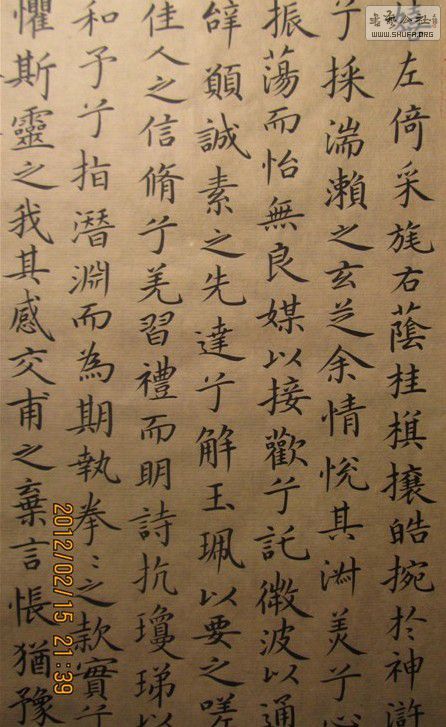 嬉左倚采旄右蔭桂旗攘皓捥於神滸
兮採湍瀨之玄芝余情悅其淑美兮心
振蕩而怡無良媒以接歡兮託微波以通
辝願誠素之先達兮解玉珮以要之嗟
佳人之信脩兮羌習禮而明詩抗瓊珶以
和予兮指潛淵而為期執拳〻之款實兮
懼斯靈之我其感交甫之棄言悵猶豫
書法公社
WWW.SHUFA.ORG
2012/02/15 21:39